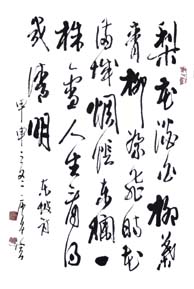 梨花淡白柳
青柳絮飛時花
滿城惆悵東欄一
株雪人生看得
幾清明
東坡詩
甲申